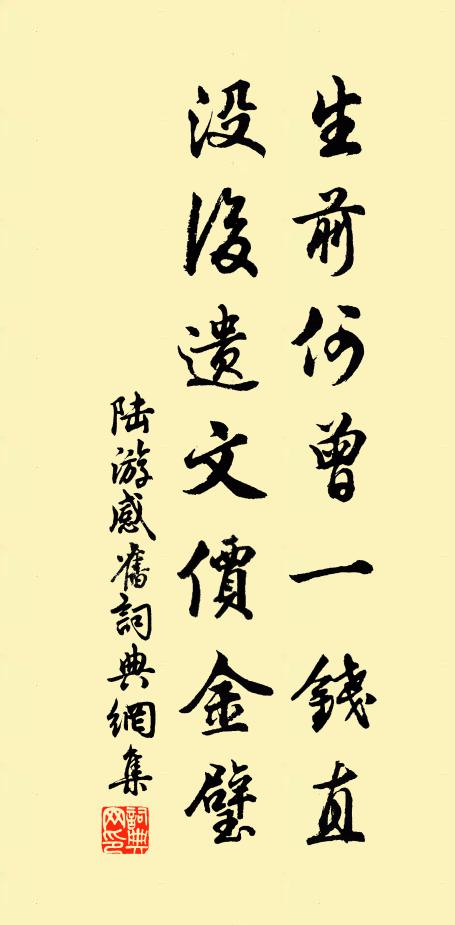 生前何曾一錢直
没後遺文價金璧
陸游感舊詞典網集
詞典網印